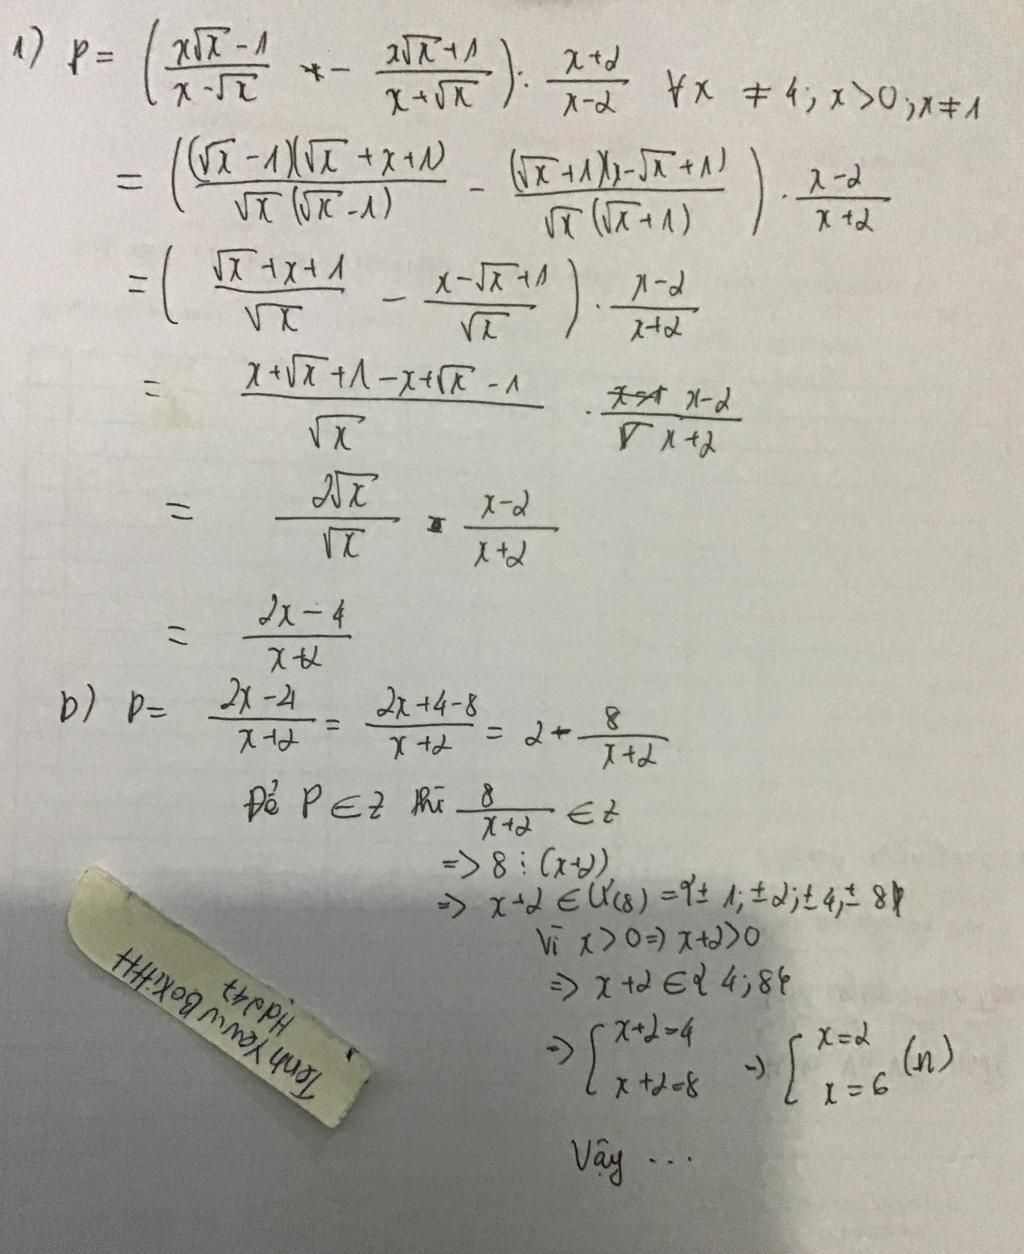 1) P = (x√x - 1 / x - √x - x√x + 1 / x + √x) : x+2 / x-2 ∀x ≠ 4; x>0; x≠1
= ((√x - 1)(√x + x + 1) / √x (√x - 1) - (√x + 1)(x - √x + 1) / √x (√x + 1)) . x-2 / x+2
= (√x + x + 1 / √x - x - √x + 1 / √x) . x-2 / x+2
= x + √x + 1 - x + √x - 1 / √x . x-2 / x+2
= 2√x / √x . x-2 / x+2
= 2x - 4 / x+2
b) P = 2x - 4 / x+2 = 2x + 4 - 8 / x+2 = 2 - 8 / x+2
Để P ∈ Z thì 8 / x+2 ∈ Z
=> 8 ⋮ (x+2)
=> x+2 ∈ Ư(8) = {± 1; ± 2; ± 4; ± 8}
Vì x > 0 => x+2 > 0
=> x+2 ∈ { 4; 8}
=> [ x+2=4 => [ x=2 (n)
x+2=8 x=6
Vậy ...
HdJ247